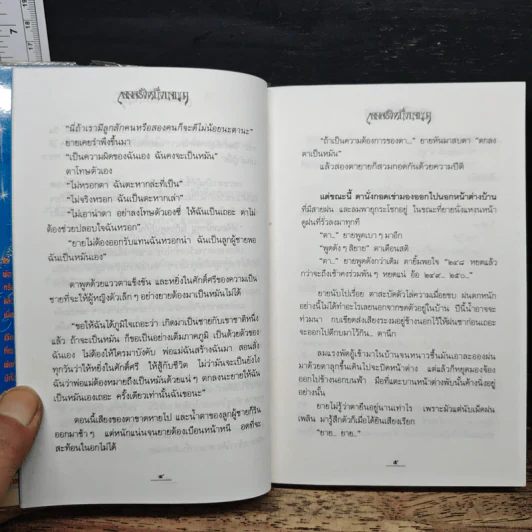 "นี่ถ้าเรามีลูกสักคนหรือสองคนก็จะดีไม่น้อยนะตานะ"
ยายเคยรำพึงขึ้นมา
"เป็นความผิดของฉันเอง ฉันคงจะเป็นหมัน"
ตาโทษตัวเอง
"ไม่หรอกตา ฉันตะหากล่ะที่เป็น"
"ไม่จริงหรอก ฉันเป็นตะหากเล่า"
"ไม่เอาน่าตา อย่าลงโทษตัวเองซี่ ให้ฉันเป็นเถอะ ตาไม่
ต้องช่วยปลอบใจฉันหรอก"
"ยายไม่ต้องออกรับแทนฉันหรอกน่า ฉันเป็นลูกผู้ชายพอ
ฉันเป็นหมันเอง"
ตาพูดด้วยแววตาแข็งขัน และหยิ่งในศักดิ์ศรีของความเป็น
ชายที่จะให้ผู้หญิงตัวเล็ก ๆ อย่างยายต้องมาเป็นหมันไม่ได้
"ขอให้ฉันได้ภูมิใจเถอะว่า เกิดมาเป็นชายกับเขาชาติหนึ่ง
แล้ว ถ้าจะเป็นหมัน ก็ขอเป็นอย่างเต็มภาคภูมิ เป็นด้วยตัวของ
ฉันเอง ไม่ต้องให้ใครมาบังคับ พ่อแม่ฉันสร้างฉันมา สอนสั่ง
ทุกวันว่าให้หยิ่งในศักดิ์ศรี ให้สู้กับชีวิต ไม่ว่ามันจะเป็นยังไง
ฉันว่าพ่อแม่ต้องหมายถึงเป็นหมันด้วยแน่ ๆ ตกลงนะยายให้ฉัน
เป็นหมันเองเถอะ ครั้งเดียวเท่านั้นฉันขอนะ"
ตอนนี้เสียงของตาขาดหายไป และน้ำตาของลูกผู้ชายก็ริน
ออกมาช้า ๆ แต่หนักแน่นจนยายต้องเบือนหน้าหนี อดที่จะ
สะท้อนในอกไม่ได้
"ถ้าเป็นความต้องการของตา..." ยายหันมาสบตา "ตกลง
ตาเป็นหมัน"
แล้วสองตายายก็สวมกอดกันด้วยความปีติ
แต่ขณะนี้ ตานั่งกอดเข่ามองออกไปนอกหน้าต่างบ้าน
ที่มีสายฝน และลมพายุกระโชกอยู่ ในขณะที่ยายนั่งแหงนหน้า
ดูฝนที่รั่วลงมาทุกที่
"ตา.." ยายพูดเบา ๆ มาอีก
"พูดดัง ๆ สิยาย" ตาเตือนสติ
"ตา.." ยายพูดดังกว่าเดิม ตายิ้มพอใจ "๒๔๘ หยดแล้ว
ยายนับไปเรื่อย
ลมแรงพัดอู้เข้ามาในบ้านจนหนาวชื้นมันเอาละอองฝน
มาด้วยตาลุกขึ้นเดินไปจะปิดหน้าต่าง แต่แล้วก็หยุดมองจ้อง
ออกไปข้างนอกบนฟ้า มือที่แตะบานหน้าต่างพับนั้นค้างนิ่งอยู่
อย่างนั้น
ยายไม่รู้ว่าตายืนอยู่นานเท่าไร เพราะมัวแต่นับเม็ดฝน
เพลิน มารู้สึกตัวก็เมื่อได้ยินเสียงเรียก
"ยาย.. ยาย.."